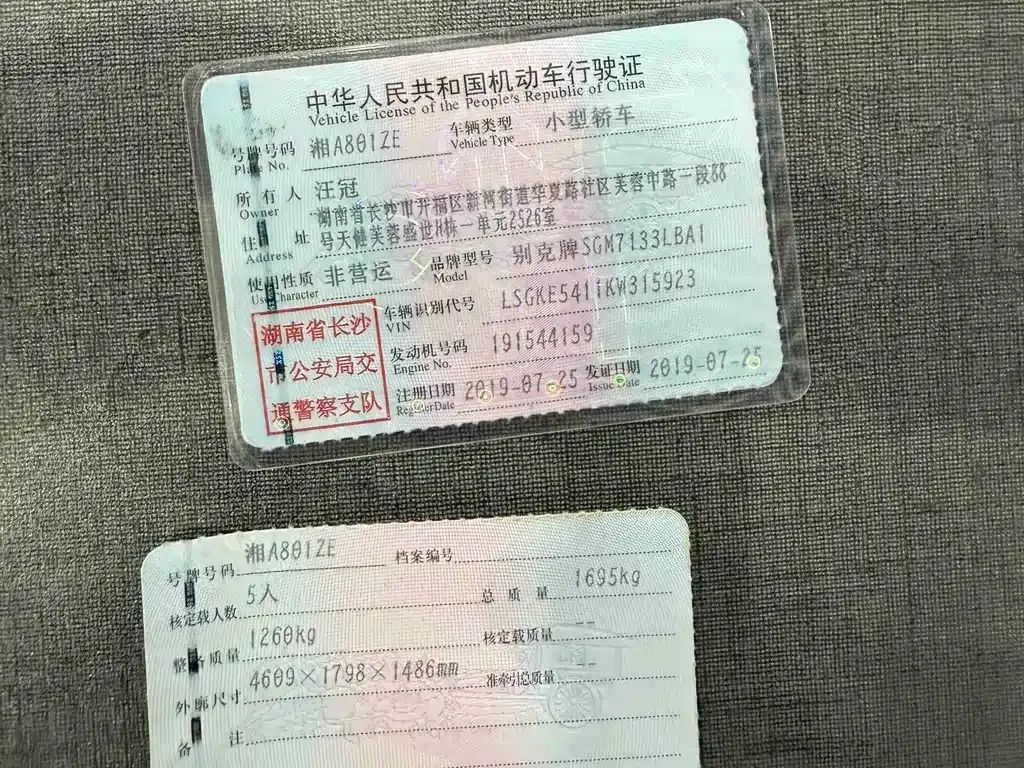 中华人民共和国机动车行驶证
Vehicle License of the People's Republic of China
号牌号码 湘A801ZE 车辆类型 小型轿车
Plate No. Vehicle Type
所有人 汪冠
Owner
住址 湖南省长沙市开福区新河街道华夏路社区芙蓉中路一段88
号天健芙蓉盛世H栋一单元2526室
Address
使用性质 非营运 品牌型号 别克牌SGM7133LBA1
Use Character Model
湖南省长沙
市公安局交
通警察支队
车辆识别代号 LSGKE5411KW315923
VIN
发动机号码 191544159
Engine No.
注册日期 2019-07-25 发证日期 2019-07-25
Register Date Issue Date
号牌号码 湘A801ZE 档案编号
核定载人数 5人 总质量 1695kg
整备质量 1260kg 核定载质量 --
外廓尺寸 4609×1798×1486mm 准牵引总质量 --
备注